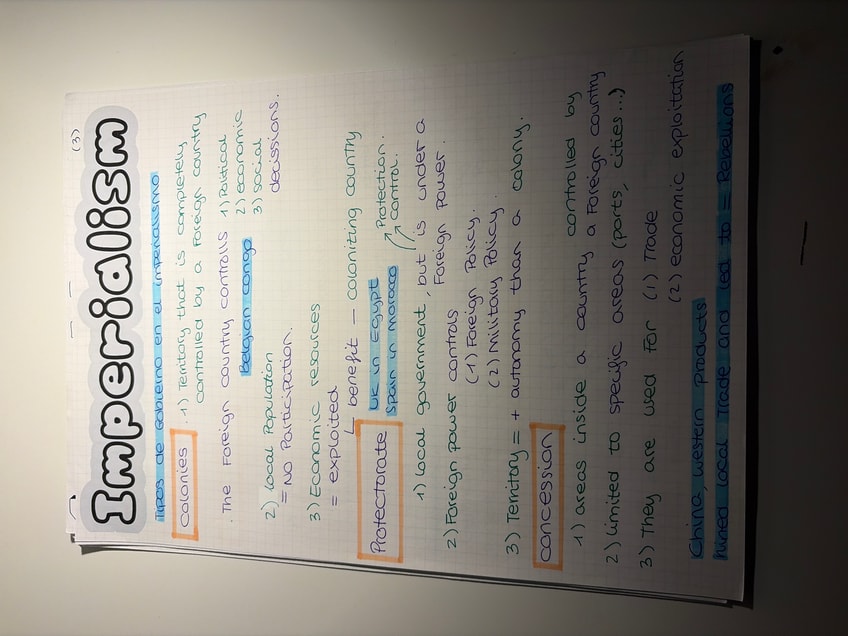 (3)
Imperialism
Tipos de gobierno en el imperialismo
Colonies
1) Territory that is completely
controlled by a Foreign country
. The Foreign country controls 1) Political
2) economic
3) social
decissions.
Belgian Congo
2) Local Population
= No Participation.
3) Economic resources
= exploited
↳ benefit – coloniting country
Protectorate
UK in Egypt
Spain in Morocco
Protection.
control.
1) Local government, but is under a
Foreign power.
2) Foreign power controls
(1) Foreign Policy.
(2) Military Policy.
3) Territory = + autonomy than a colony.
Concession
1) areas inside a country controlled by
a Foreign country
2) Limited to specific areas (ports, cities...)
3) They are used for (1) Trade
(2) economic exploitation
China, western products
ruined local Trade and led to = Rebellions